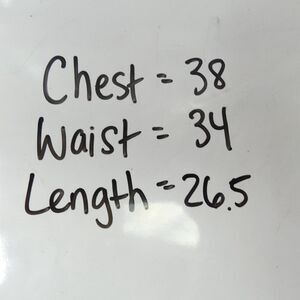 Chest = 38
Waist = 34
Length = 26.5